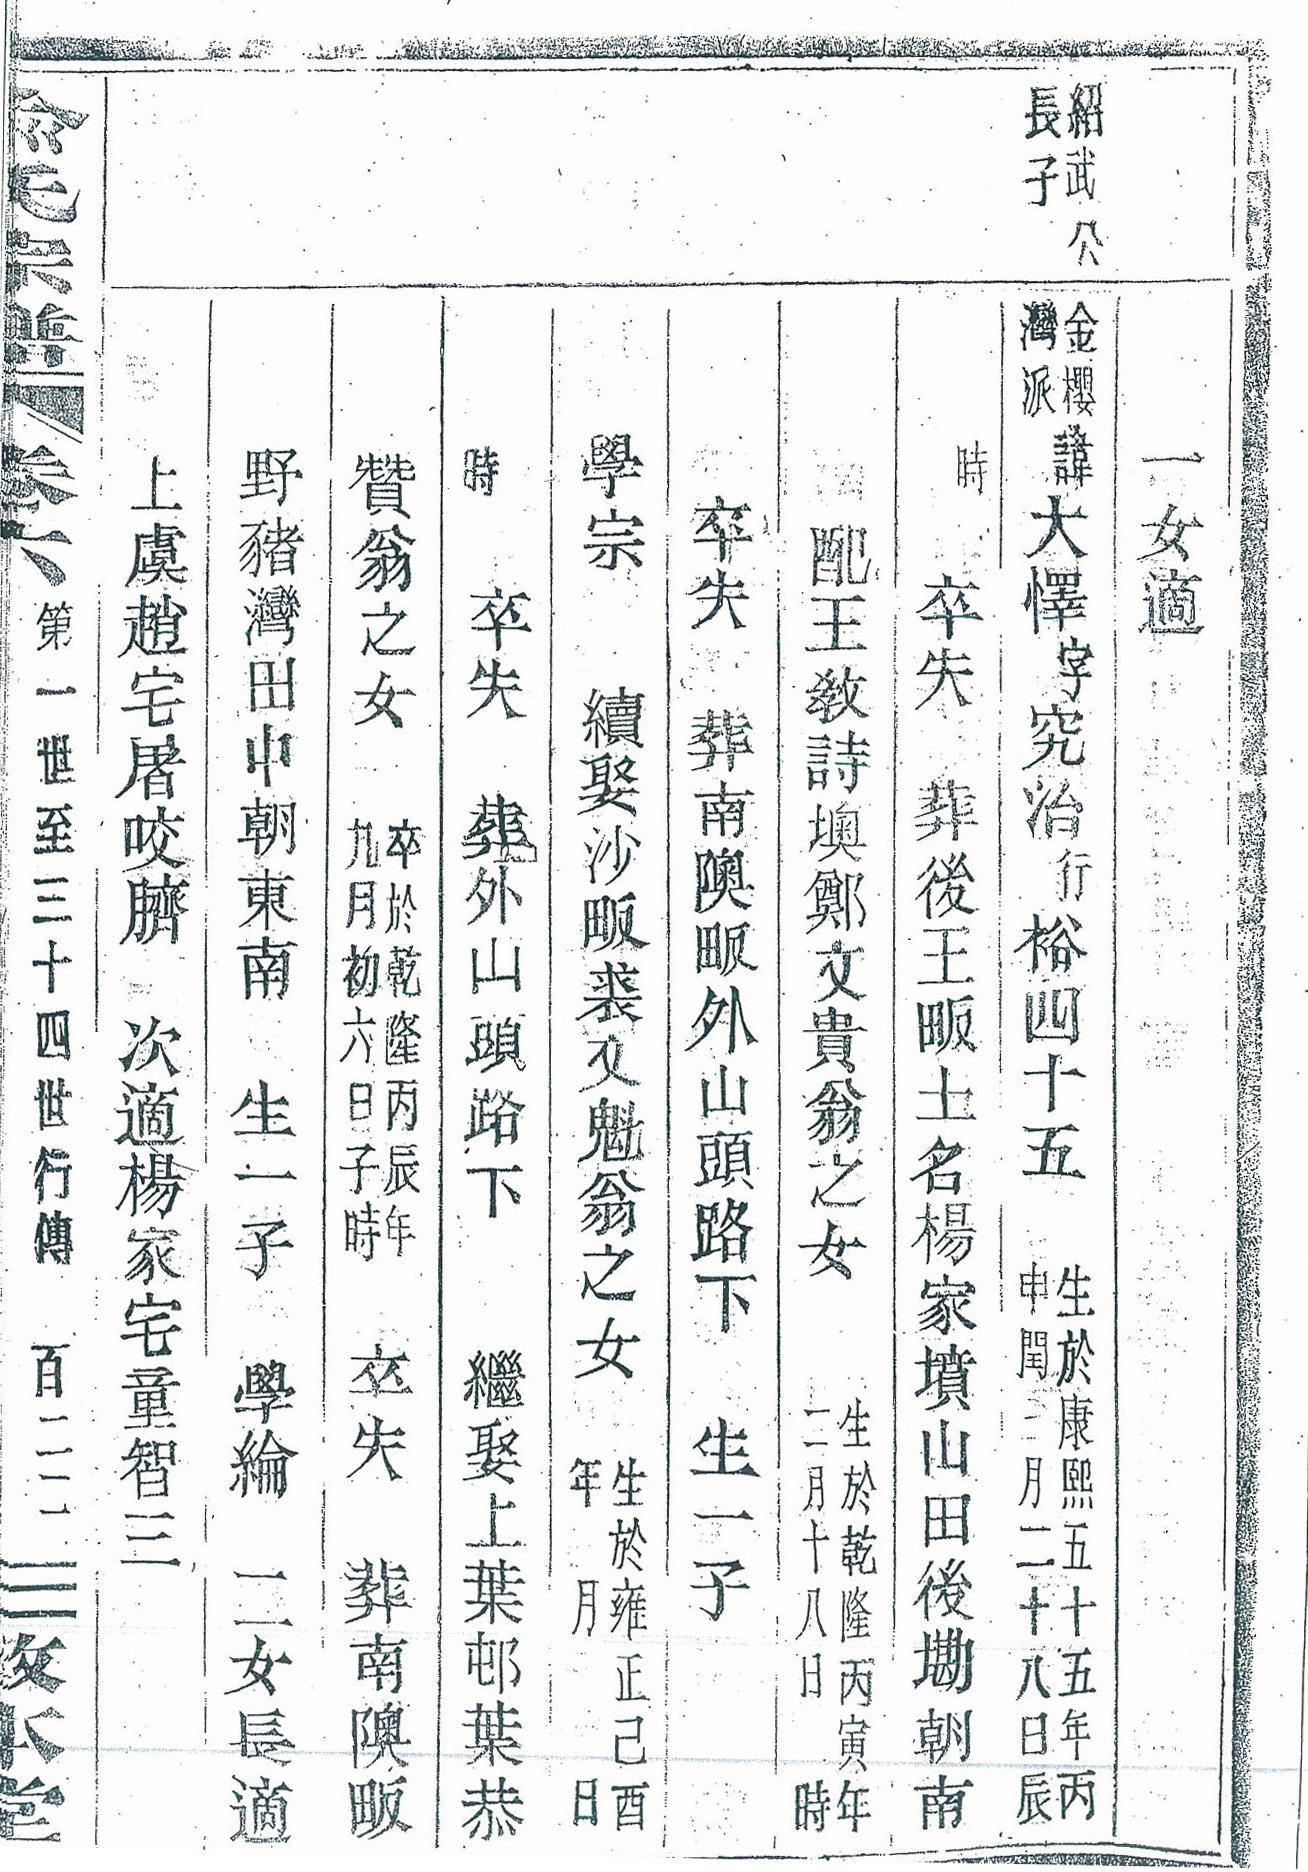 一女適
紹武公
長子
金櫻
灣派
諱大懌字究治行裕四十五
生於康熙五十五年丙
申閏三月二十八日辰
時
卒失 葬後王畈土名楊家墳山田後墈朝南
配王教詩墺鄭文貴翁之女
生於乾隆丙寅年
二月十八日 時
卒失 葬南隩畈外山頭路下 生一子
學宗 續娶沙畈裘文魁翁之女
生於雍正己酉
年 月 日
時
卒失 葬外山頭路下 繼娶上葉邨葉恭
贊翁之女
卒於乾隆丙辰年
九月初六日子時
卒失 葬南隩畈
野豬灣田中朝東南 生一子 學綸 二女長適
上虞趙宅屠咬臍 次適楊家宅童智三
俞氏宗譜 卷六 第一世至三十四世行傳 百二二一 敦本堂